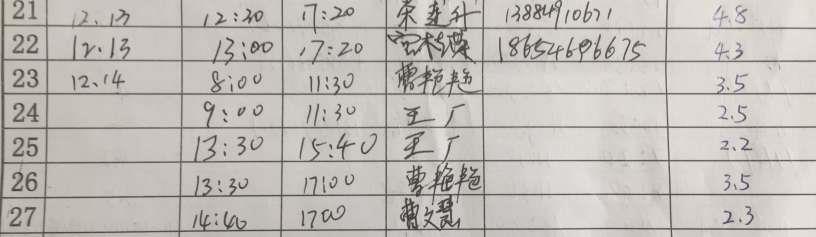 21 12.13 12:30 17:20 宋莲升 13884910671 4.8
22 12.13 13:00 17:20 18654696675 4.3
23 12.14 8:00 11:30 曹艳艳 3.5
24 9:00 11:30 王厂 2.5
25 13:30 15:40 王厂 2.2
26 13:30 17:00 曹艳艳 3.5
27 14:40 1700 曹文慧 2.3